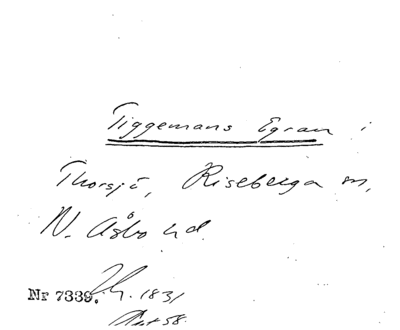 Tiggemans Egran i
Thorsjö, Riseberga sn,
N. Åsbo hd.
Nr 7339. 1831
58.